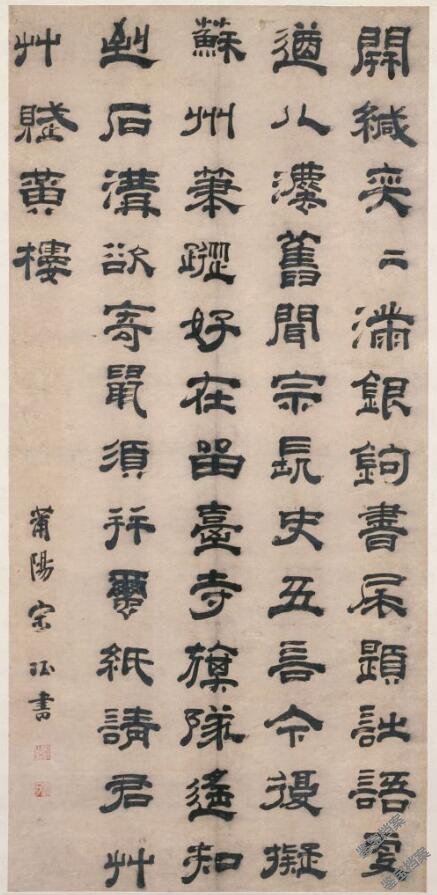 開緘奕二滿銀鉤書尾題詩語更
遒八灋舊聞宗長史五言今復擬
蘇州筆蹤好在留臺寺旗隊遙知
到石溝欲寄鼠須并繭紙請君艸
艸賦黃樓
莆陽宋珏書